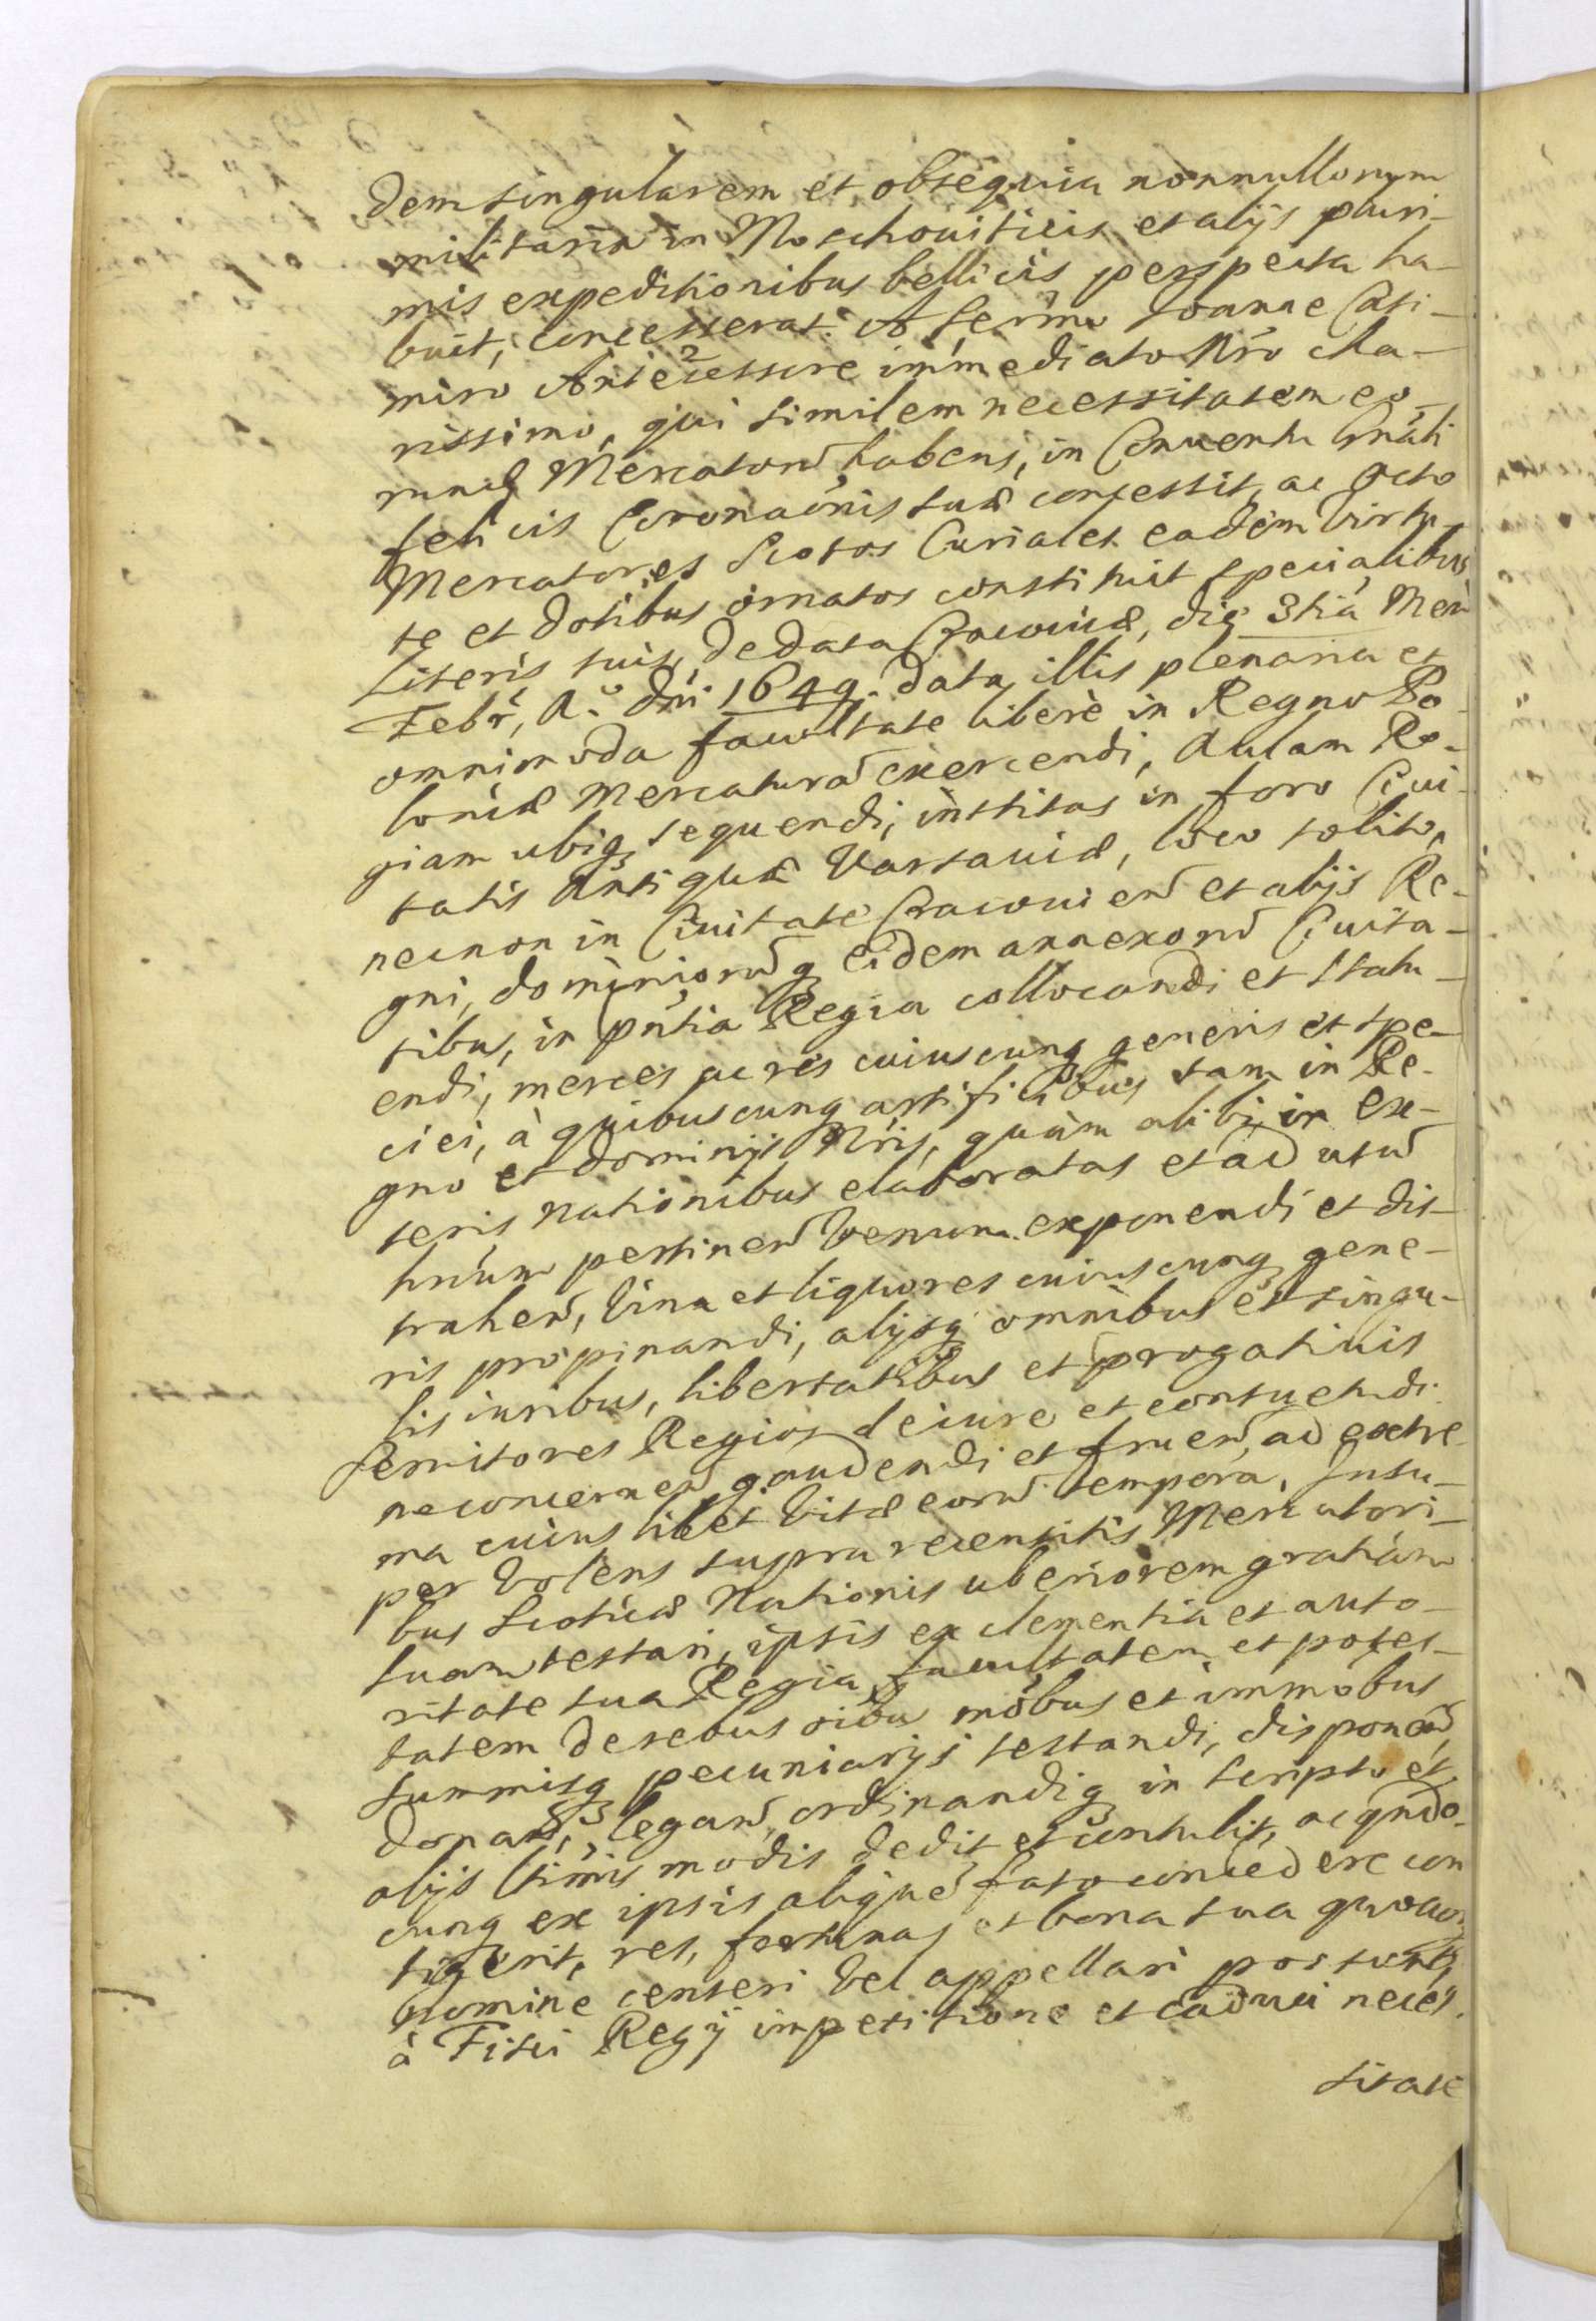 dem singularem et obsequia nonnullorum
militaria in Moschouiticis et alijs pluri-
mis expeditionibus bellicis perspecta ha-
buit, concesserat. A Sermo Joanne Casi-
miro Antecessore immediato Nro cha-
rissimo, qui similem necessitatem eo-
rund Mercatorũ habens, in Conuentu Gnãli
felicis Coronaõnis suæ concessit, ac octo
Mercatores Scotos Curiales eadem virtu-
te et dotibus ornatos constituit specialibus
Literis suis, de data Cracouiæ, die 3tia Men
Febr, A.° Dni 1649. data illis plenaria et
omnimoda facultate liberè in Regno Po-
loniæ Mercaturã exercendi, Aulam Re-
giam ubiq sequendi, institas in foro Ciui-
tatis Antiquæ Varsauiæ, loco solito,
necnon in Ciuitate Cracouień et alijs Re-
gni, dominiorũq eidem annexorũ Ciuita-
tibus, in pñtia Regia collocandi et statu-
endi, merces ac res cuiuscunq generis et spe-
ciei, à quibuscunq artificibus tam in Re-
gno et Dominijs Nris, quàm alibi in ex-
teris nationibus elaboratas et ad usũ
hnium pertineñ venum exponendi et dis-
traheñ, vina et liquores cuiuscunq gene-
ris propinandi, alijsq omnibus et singu-
lis iuribus, libertatibus et progatiuis
Seruitores Regios de iure et consuetudi-
ne concerneñ gaudendi et frueñ, ad extre-
ma cuius libet vitæ eorũ tempora, Insu-
per volens supra recensitis Mercatori-
bus Scoticæ Nationis uberiorem gratiam
suam testari, ipsis ex clementia et auto-
ritate sua Regia facultatem et potes-
tatem de rebus oibus mõbus et immõbus
summisq pecuniarijs testandi, disponeñ,
donañ, legañ, ordinandiq in scripto et
alijs ltimis modis dedit et contulit, ac qñdo-
cunq ex ipsis aliquẽ fato concedere con
tigerit, res, fortunas et bona sua quocunq
nomine censeri vel appellari possunt,
à Fisci Regij impetitione et caduci neces.
sitate